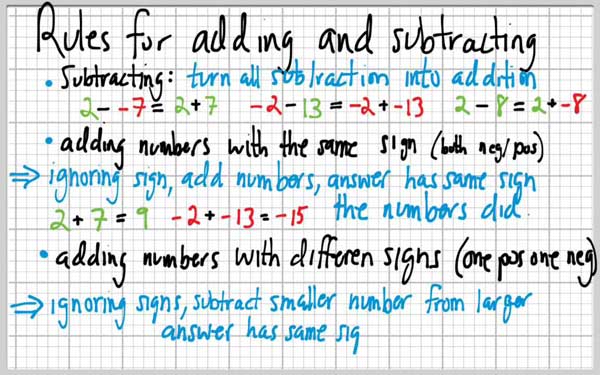 Rules for adding and subtracting
• Subtracting: turn all subtraction into addition
2 - -7 = 2 + 7 -2 - 13 = -2 + -13 2 - 8 = 2 + -8
• adding numbers with the same sign (both neg/pos)
⇒ ignoring sign, add numbers, answer has same sign
2 + 7 = 9 -2 + -13 = -15 the numbers did.
• adding numbers with differen signs (one pos one neg)
⇒ ignoring signs, subtract smaller number from larger
answer has same sig